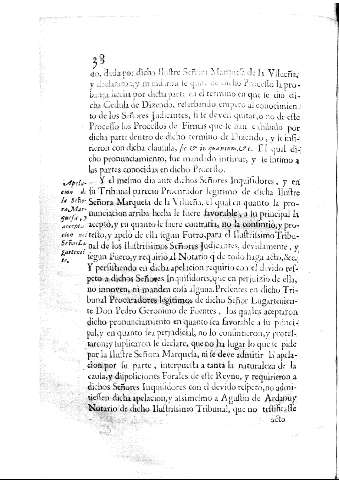 38
do, dada por dicho Ilustre Señora Marquesa de la Vilueña,
y declarando, y mandando se quite de dichos Processo la pro-
dicha parte en el termino en que se dio di-
cha Cedula de Dizendo, refartando empero al conocimien-
to de los Señores Judicantes, si se deven quitar, o no de este
Processo los Processos de Firmas que se han exhibido por
dicha parte dentro de dicho termino de Dizendo, y se insi-
nicron con dicha clausula, si & in quantum, &c. El qual di-
cho pronunciamiento, fue mandado intimar, y se intimo a
las partes conocidas en dicho Processo.
Y el mesmo dia ante dichos Señores Inquisidores, y en
su Tribunal parecio Procurador legitimo de dicha Ilustre
Señora Marquesa de la Vilueña, el qual en quanto la pro-
nunciacion arriba hecha le fuere favorable, a su principal la
acepto, y en quanto le fuere contraria, no la consintio, y pro-
testo, y apelo de ella segun Fuero, para el Ilustrissimo Tribu-
nal de los Ilustrissimos Señores Judicantes, devidamente, y
segun Fuero, y requirio al Notario q de todo haga acto, &c.
Y persistiendo en dicha apelacion requirio con el divido res-
peto a dichos Señores Inquisidores, que en perjuizio de ella,
no innoven, ni manden cosa alguna. Presentes en dicho Tri-
bunal Procuradores legitimos de dicho Señor Lugartenien-
te Don Pedro Geronimo de Fuentes, los quales aceptaron
dicho pronunciamiento en quanto sea favorable a su princi-
pal, y en quanto sea perjudicial, no lo consintieron, y protes-
taron, y suplicaron se declare, que no ha lugar lo que se pide
por la Ilustre Señora Marquesa, ni se deve admitir la apela-
cion por su parte, interpuesta a tanta la naturaleza de la
causa, y disposiciones Forales de este Reyno, y requirieron a
dichos Señores Inquisidores con el devido respeto, no admi-
tiessen dicha apelacion, y assimesmo a Agustin de Ardanuy
Notario de dicho Ilustrissimo Tribunal, que no testificasse
acto
Apela-
cion de
la Seño-
ra Mar-
quesa, y
acepta-
cion del
Señor Lu-
garteniẽ-
te.